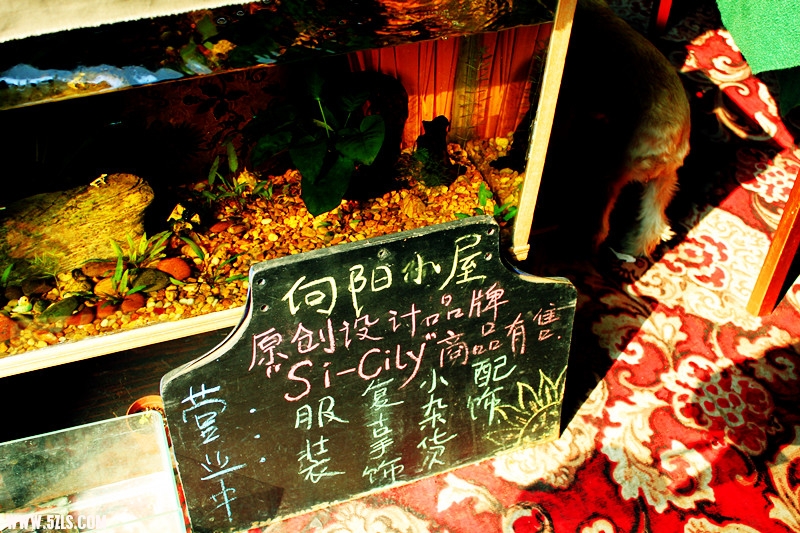 向阳小屋
原创设计品牌
"Si-Cily"商品有售
营业中
服装
复古首饰
小杂货
配饰
WWW.5ZLS.COM